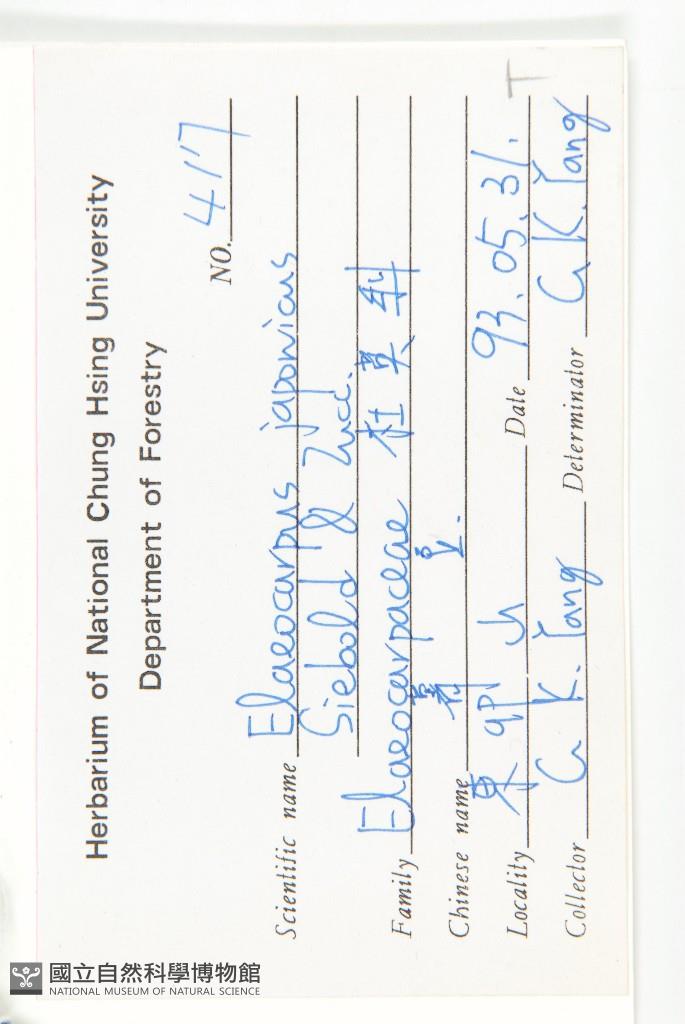 Herbarium of National Chung Hsing University
Department of Forestry
NO. 417
Scientific name Elaeocarpus japonicus
Siebold & Zucc.
Family Elaeocarpaceae 杜英科
Chinese name 薯豆.
Locality 東卯山 Date 93.05.31.
Collector C. K. Yang Determinator C. K. Yang
T
國立自然科學博物館
NATIONAL MUSEUM OF NATURAL SCIENCE